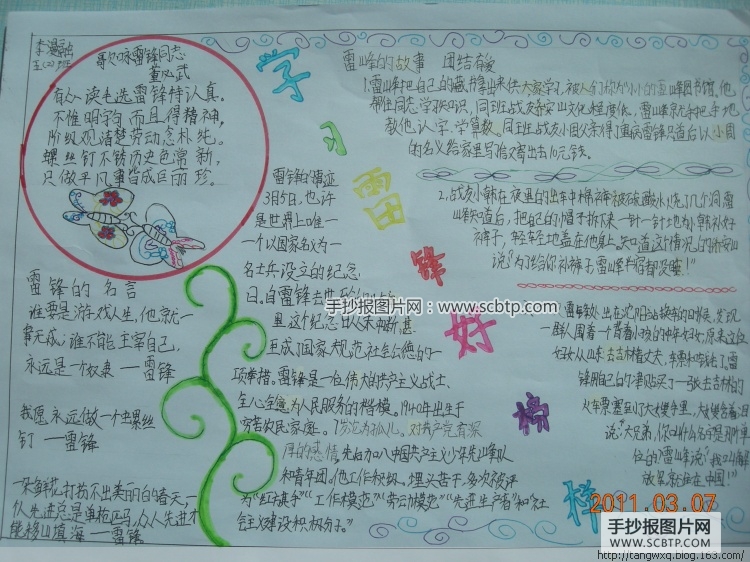 李漫
五(2)班
歌咏雷锋同志
董必武
有人读毛选雷锋特认真。
不惟明字句而且得精神,
阶级观清楚劳动态朴纯。
螺丝钉不锈历史色常新,
只做平凡事皆成巨丽珍。
学习雷锋好榜样
雷锋的故事 团结友爱
1.雷锋把自己的藏书拿出来供大家学习,被人们称为"小小的雷锋图书馆,他
帮助同志学习知识,同班战友
教他认字、学算数。同班战友小
的名义给家里写信又寄出去10元钱。
2.战友小韩在夜里的出车中棉裤被硫酸水烧了几个洞雷
锋知道后,把自己的帽子拆下来一针一针地为小韩补好
裤子,轻轻地盖在他身上。
说"为了给你补裤子雷锋半宿都没睡!"
雷锋的事迹
3月5日,也许
是世界上唯一
一个以国家名义为一
名士兵设立的纪念
日。自雷锋去世
里这个纪念日从未中断甚
至成了国家规范社会公德的一
项举措。雷锋是一位伟大的共产主义战士、
全心全意为人民服务的楷模。1940年出生于
穷苦农民家庭。了沦为孤儿。对共产党有深
厚的感情。先后加入中国共产主义少年先锋队
和青年团。他工作积极。埋头苦干,多次被评
为"红旗手""工作模范""劳动模范""先进生产者"和"社
会主义建设积极分子"。
雷锋的名言
谁要是游戏人生,他就一
事无成;谁不能主宰自己,
永远是一个奴隶 —雷锋
我愿永远做一个螺丝
钉 —雷锋
一朵鲜花打扮不出美丽的春天,一
个人先进总是单枪匹马,众人先进才
能移山填海 —雷锋
雷锋外出在沈阳站换车的时候,发现
一群人围着一个背着小孩的中年妇女,原来这位
妇女从山东去吉林看丈夫,车票和钱丢了。雷
锋用自己的津贴买了一张去吉林的
火车票塞到大嫂手里,大嫂含着泪
说"大兄弟,你叫什么名字是那个单
位的"雷锋说"我叫解
放军就住在中国!"
手抄报图片网:www.scbtp.com
2011.03.07
手抄报图片网
WWW.SCBTP.COM
http://tangwxq.blog.163.com/